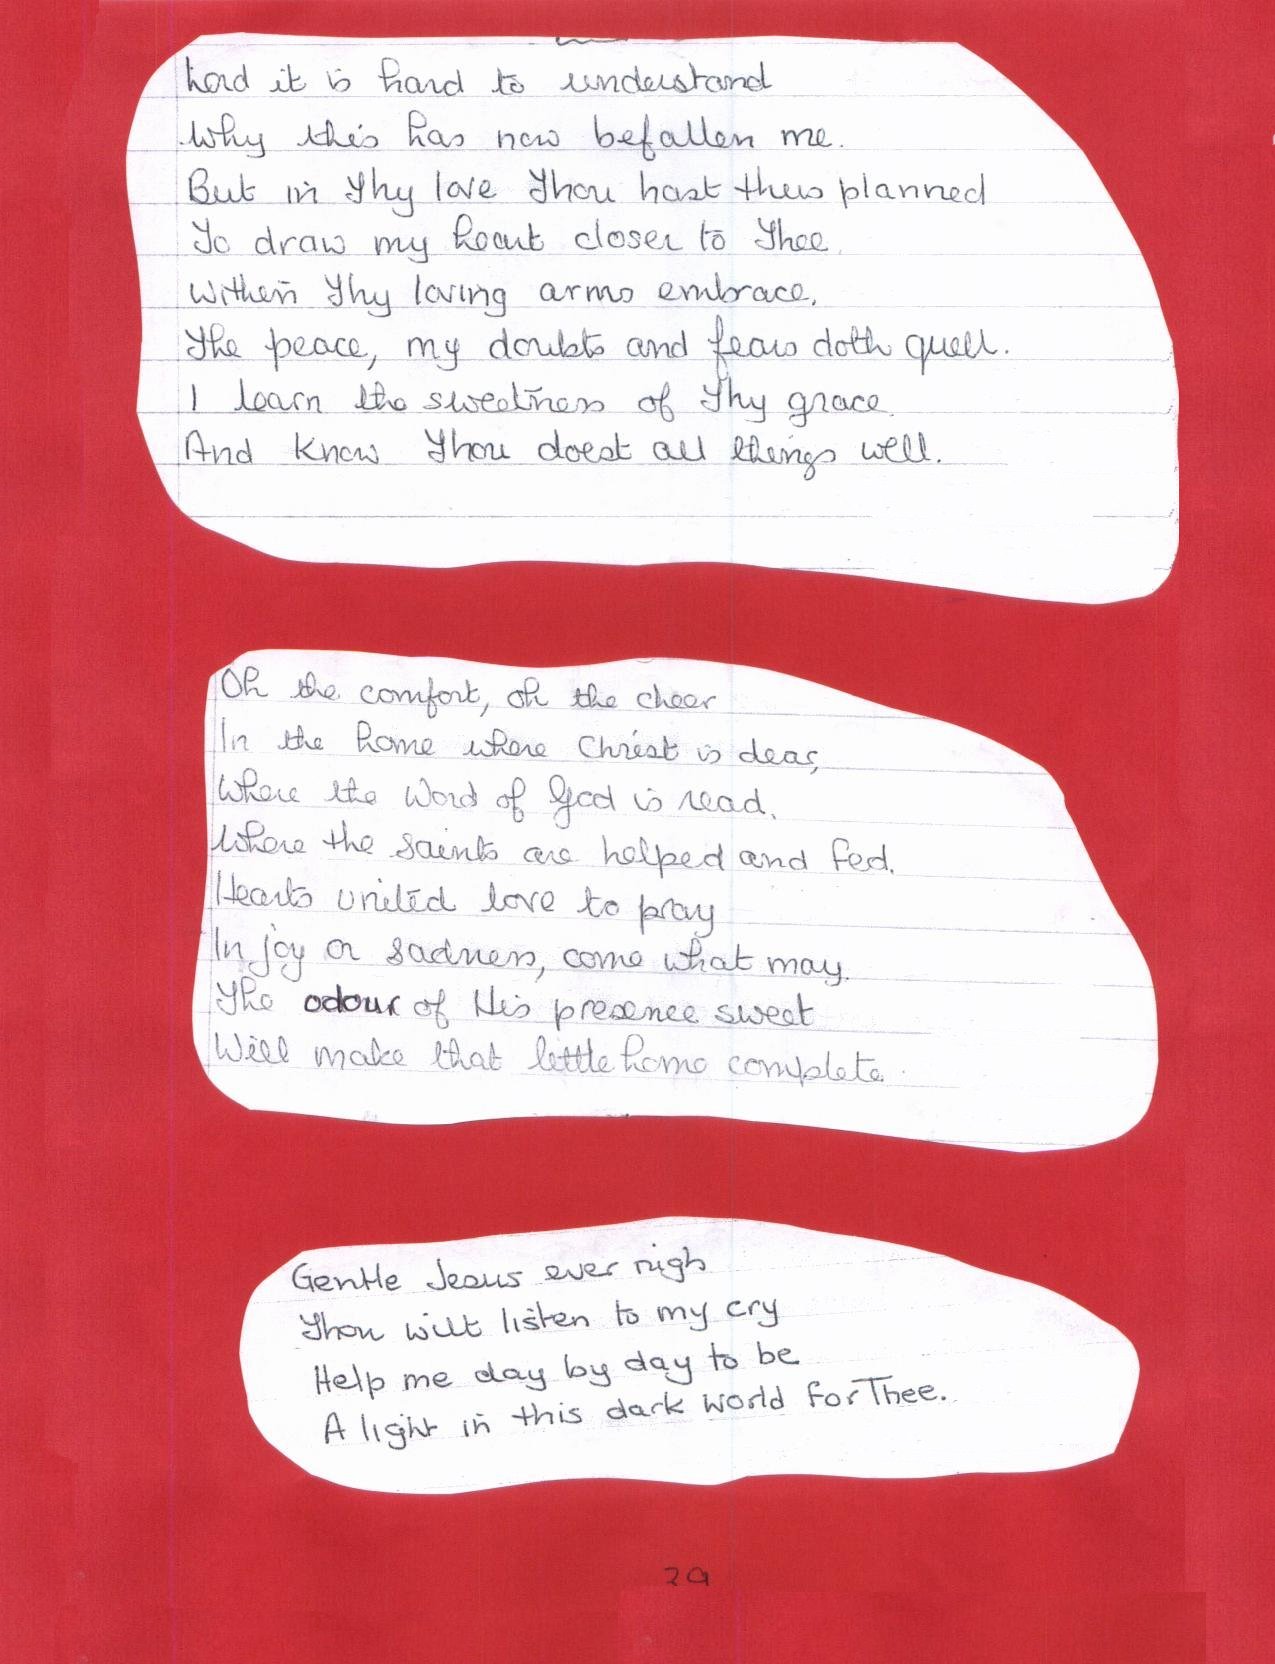 Lord it is hard to understand
Why this has now befallen me.
But in Thy love Thou hast thus planned
To draw my heart closer to Thee.
Within Thy loving arms embrace,
The peace, my doubts and fears doth quell.
I learn the sweetness of Thy grace
And know Thou doest all things well.
Oh the comfort, oh the cheer
In the home where Christ is dear,
Where the Word of God is read,
Where the saints are helped and fed.
Hearts united love to pray
In joy or sadness, come what may.
The odour of His presence sweet
Will make that little home complete.
Gentle Jesus ever nigh
Thou wilt listen to my cry
Help me day by day to be
A light in this dark world for Thee.
29